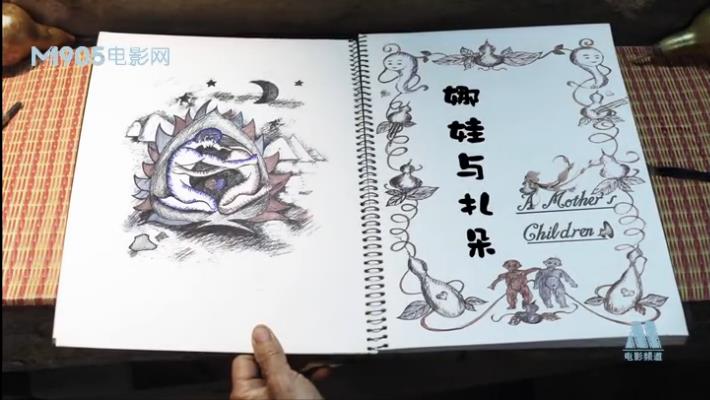 M1905电影网
娜娃与扎朵
A Mother's
Children
电影频道